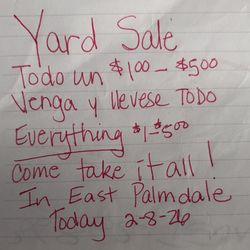 Yard Sale
Todo un $1.00 - $5.00
Venga y llevese TODO
Everything $1-$5.00
Come take it all!
In East Palmdale
Today 2-8-26